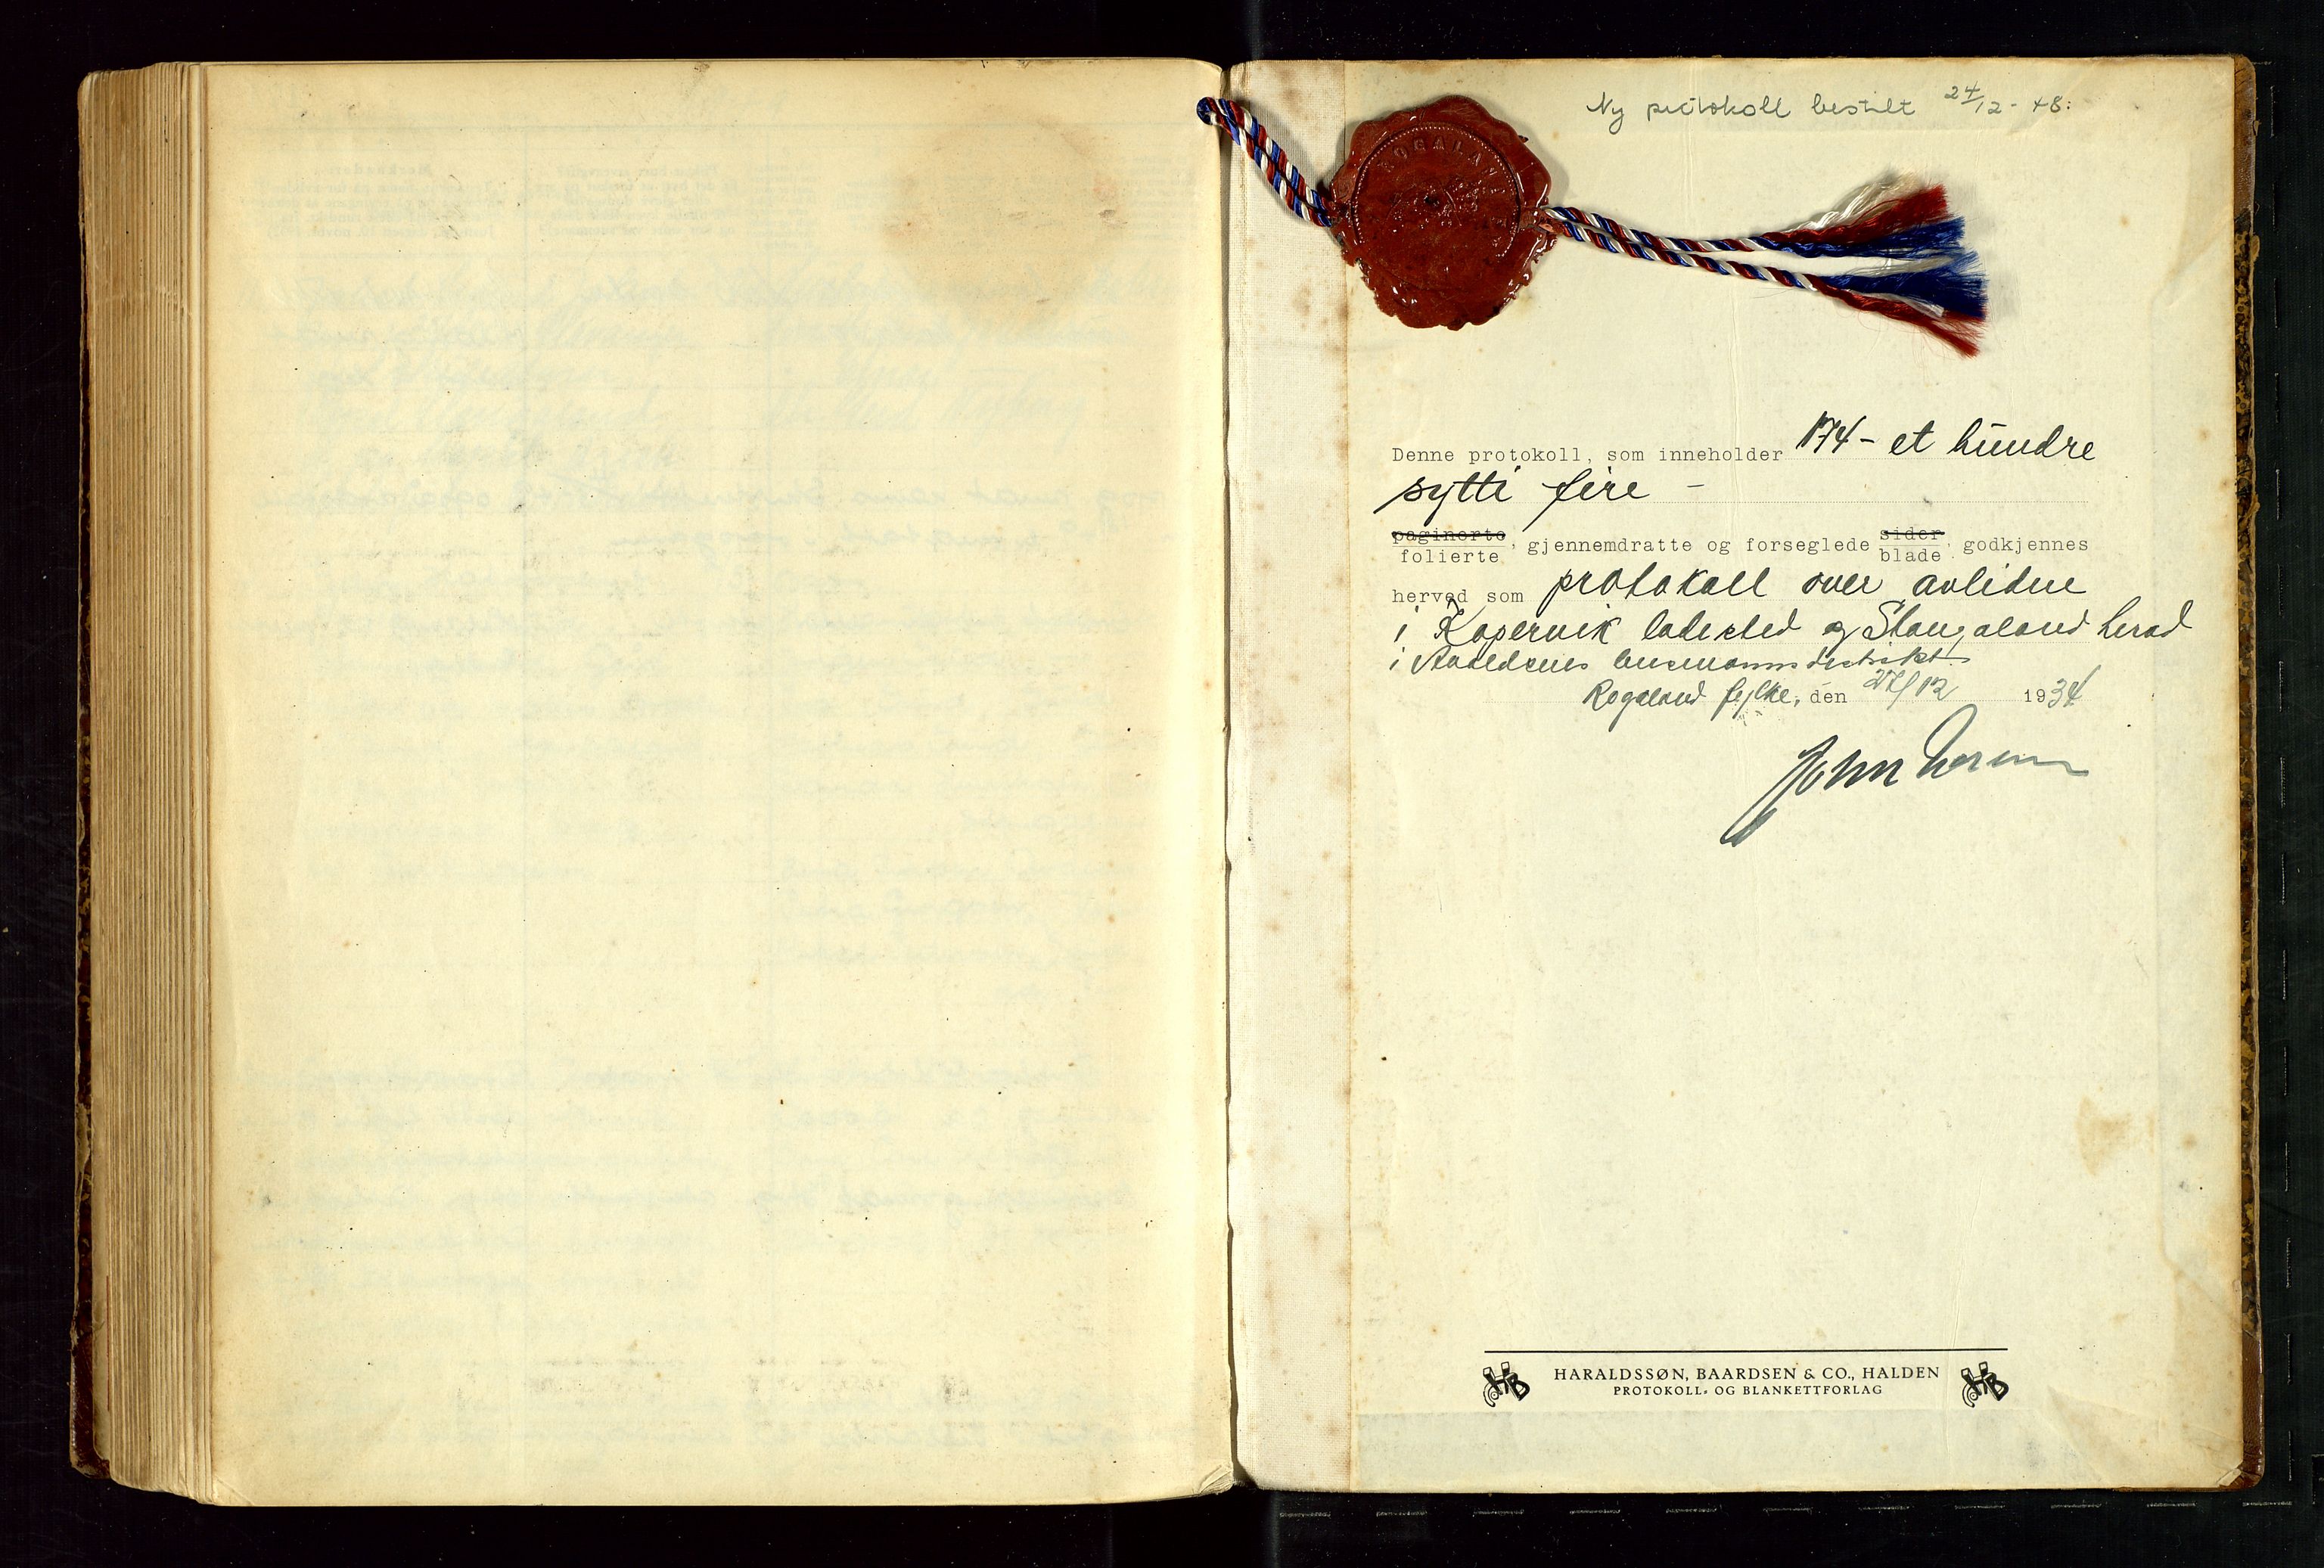 Ny protokoll bestilt 24/12-48:
ROGALAND
Denne protokoll, som inneholder 174 - et hundre
sytti fire -
paginerte folierte, gjennemdratte og forseglede sider blade, godkjennes
herved som protokoll over avlidne
i Kopervik ladested og Stangaland herad
i Avaldsnes lensmannsdistrikt.
Rogaland fylke, den 27/12 1934
John Norem
HARALDSSØN, BAARDSEN & CO., HALDEN
PROTOKOLL- OG BLANKETTFORLAG